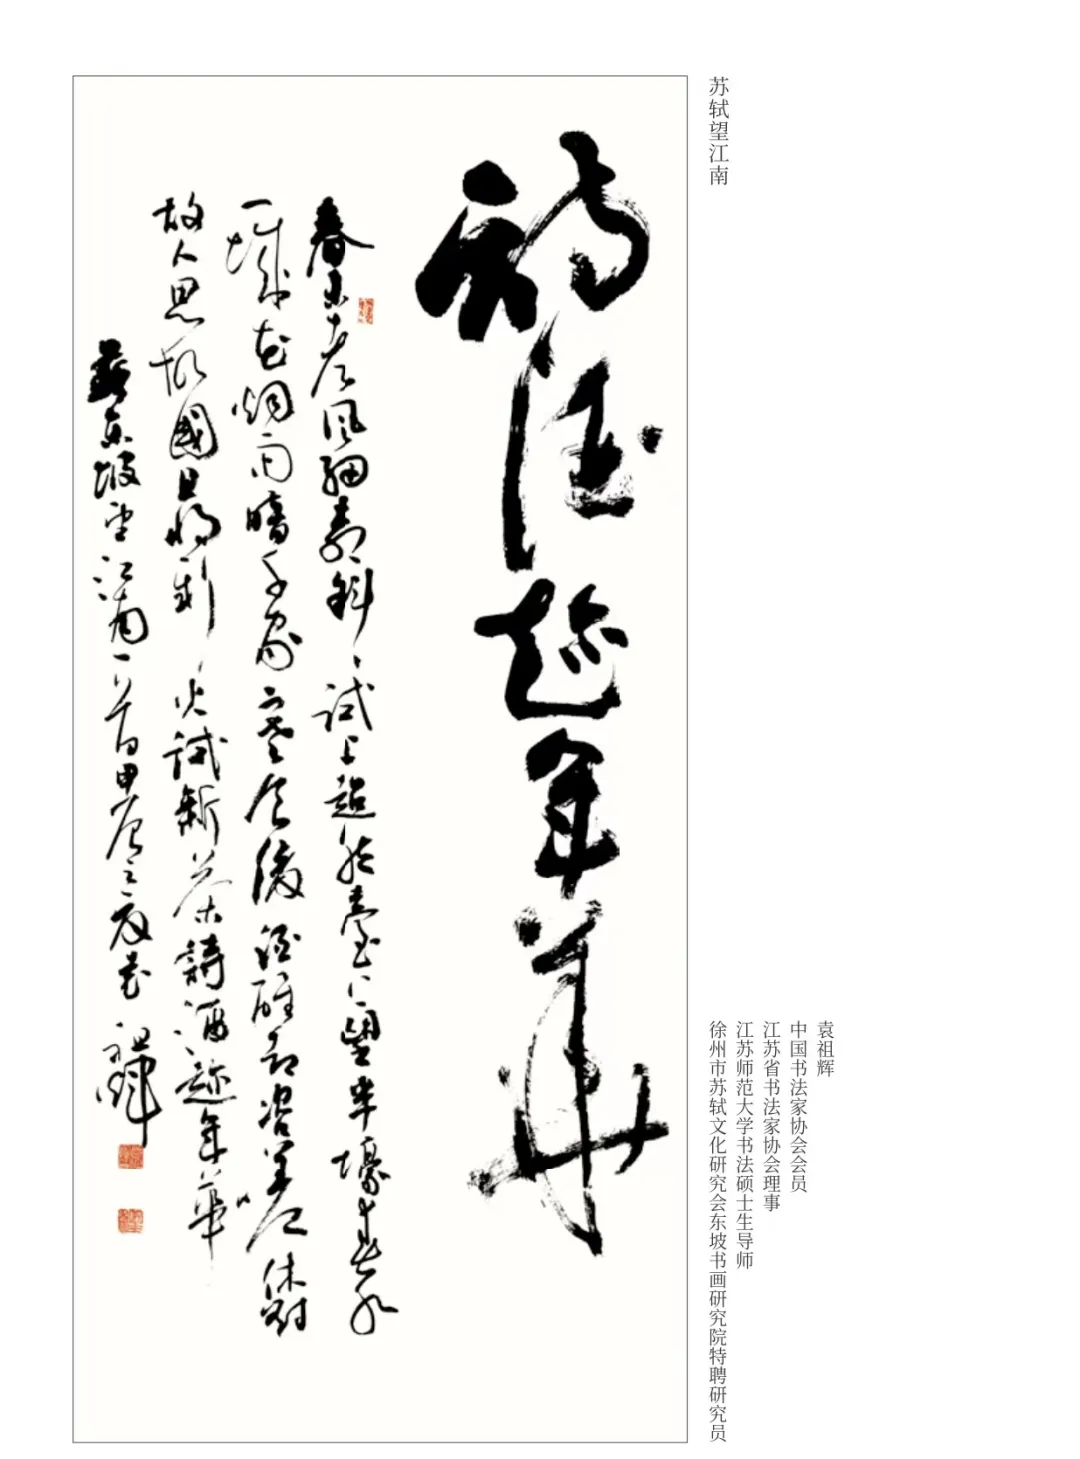 苏轼望江南
袁祖辉
中国书法家协会会员
江苏省书法家协会理事
江苏师范大学书法硕士生导师
徐州市苏轼文化研究会东坡书画研究院特聘研究员
詩酒趂年華
春未老風細柳斜斜試上超然臺上望半壕春水
一城花烟雨暗千家寒食後酒醒却咨嗟休對
故人思故國且將新火試新茶詩酒趂年華
蘇東坡望江南一首甲辰之夏 祖輝